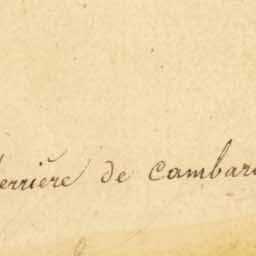 derrière de cambar